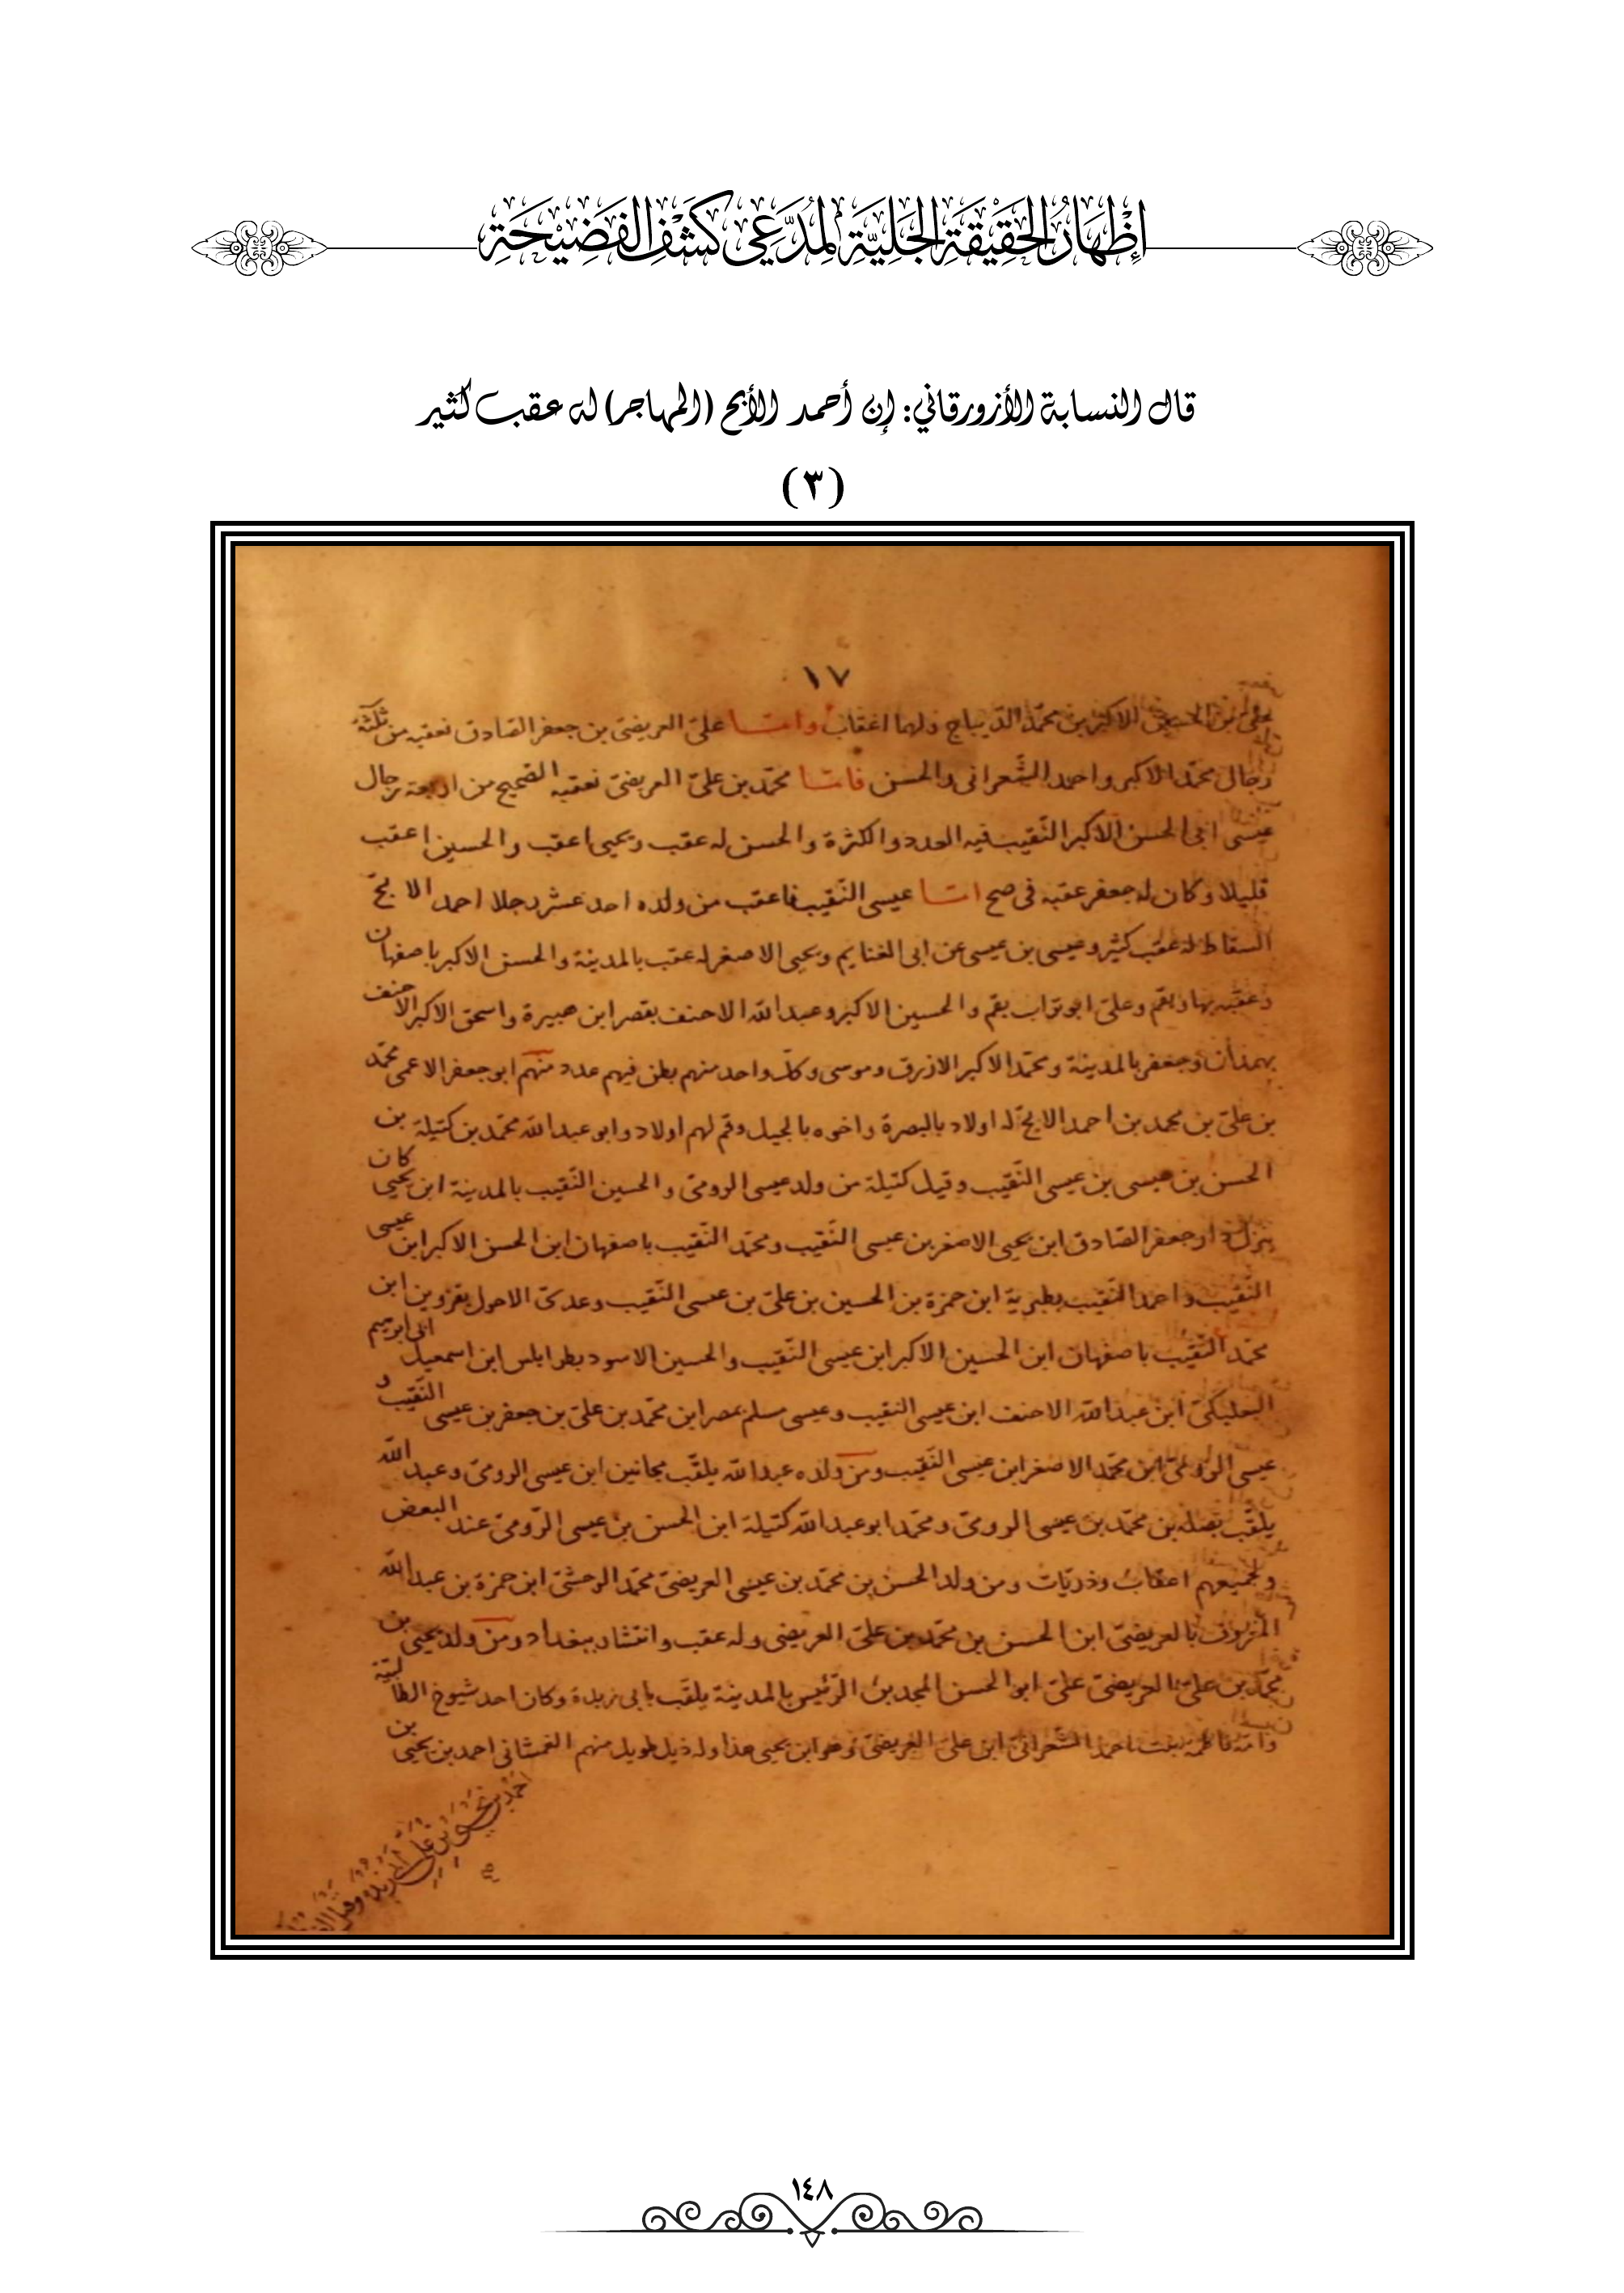 إِظْهَارُ الحَقِيْقَةِ الجَلِيَّةِ لِمُدَّعِي كَشْفِ الفَضِيْحَةِ
قال النسابة الأزورقاني: إن أحمد الأبح (المهاجر) له عقب كثير
(٣)
١٧
الاكبر بن محمّد الدّيباج ولهما اعقاب وامّا علىّ العريضىّ بن جعفر الصّادق فعقبه من ثلثة
رجال محمّد الاكبر واحمد الشّعرانى والحسن فامّا محمّد بن علىّ العريضىّ فعقبه الصّحيح من اربعة رجال
عيسى ابى الحسن الاكبر النّقيب فيه العدد والكثرة والحسن له عقب ويحيى اعقب والحسين اعقب
قليلا وكان له جعفر عقبه فى صح امّا عيسى النّقيب فاعقب من ولده احد عشر رجلا احمد الابحّ
له عقب كثير وعيسى بن عيسى عن ابى الغنايم ويحيى الاصغر له عقب بالمدينة والحسن الاكبر باصفهان
وعقبه بها وبقم وعلىّ ابو تراب بقم والحسين الاكبر وعبد الله الاحنف بقصر ابن هبيرة واسحق الاكبر الاحنف
بهمذان وجعفر بالمدينة ومحمّد الاكبر الازرق وموسى وكلّ واحد منهم بطن فيهم عدد منهم ابو جعفر الاعمى محمّد
بن علىّ بن محمد بن احمد الابحّ له اولاد بالبصرة واخوه بالجبل وقم لهم اولاد وابو عبد الله محمّد بن كتيلة بن
الحسن بن عيسى بن عيسى النّقيب وقيل كتيلة من ولد عيسى الرومىّ والحسين النّقيب بالمدينة ابن يحيى كان
ينزل دار جعفر الصّادق ابن يحيى الاصغر بن عيسى النّقيب ومحمّد النّقيب باصفهان ابن الحسن الاكبر ابن عيسى
النّقيب واحمد النّقيب بطبرية ابن حمزة بن الحسين بن علىّ بن عيسى النّقيب وعدىّ الاحول بقزوين ابن
محمّد النّقيب باصفهان ابن الحسين الاكبر ابن عيسى النّقيب والحسين الاسود بطرابلس ابن اسمعيل ابى ابرهيم
البعلبكىّ ابن عبد الله الاحنف ابن عيسى النقيب وعيسى مسلم بمصر ابن محمّد بن علىّ بن جعفر بن عيسى النّقيب و
عيسى الرومىّ ابن محمّد الاصغر ابن عيسى النّقيب ومن ولده عبد الله يلقّب مجانين ابن عيسى الرومىّ وعبد الله
يلقّب بن محمّد بن عيسى الرومىّ ومحمّد ابو عبد الله كتيلة ابن الحسن بن عيسى الرّومىّ عند البعض
ولجميعهم اعقاب وذريّات ومن ولد الحسن بن محمّد بن عيسى العريضىّ محمّد ابن حمزة بن عبد الله
بالعريضىّ ابن الحسن بن محمّد بن علىّ العريضى وله عقب وانتشار ببغداد ومن ولد يحيى بن
محمّد بن علىّ العريضىّ علىّ ابو الحسن الرّئيس بالمدينة يلقّب بابى زبدة وكان احد شيوخ الطالبيّة
وامّه فاطمة بنت احمد الشّعرانىّ ابن علىّ العريضىّ وهو ابن يحيى هذا وله ذيل طويل منهم احمد بن يحيى بن
احمد بن يحيى بن علىّ
١٤٨